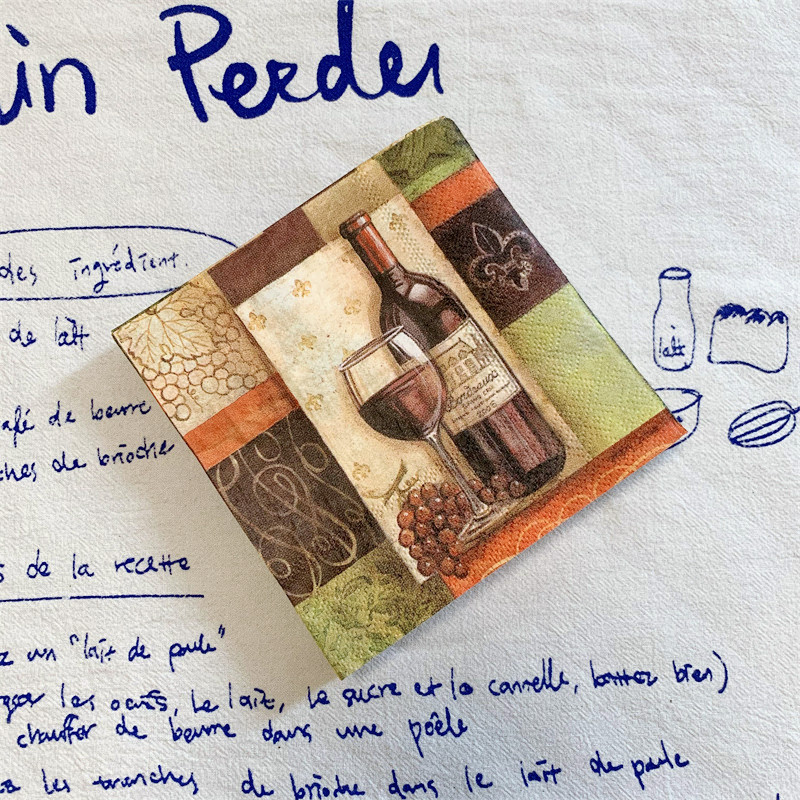 in Perdu
des ingrédient.
de lait
café de beurre
ches de brioche
lait
Bordeaux
s de la recette
ez un "lait de poule"
les oeufs, le lait, le sucre et la cannelle, battez bien)
chauffer de beurre dans une poêle
les tranches de brioche dans le lait de poule